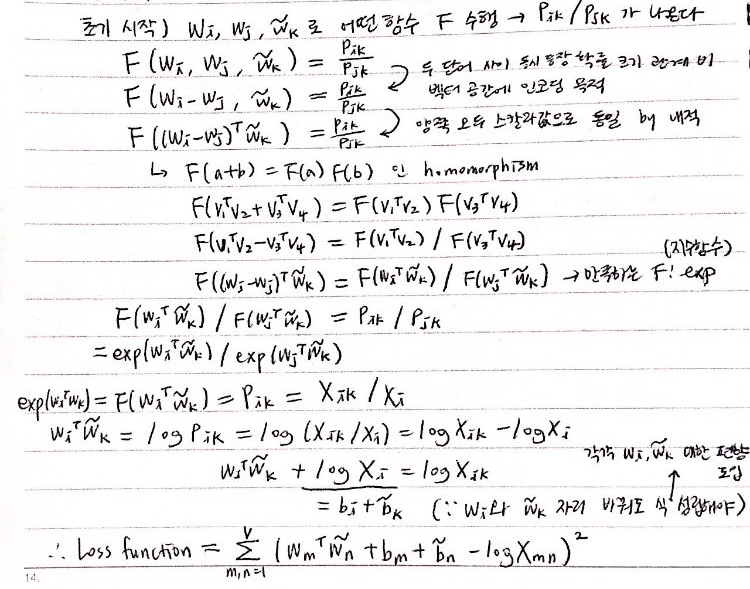 초기 시작) Wi, Wj, W̃k 로 어떤 함수 F 수행 → Pik / Pjk 가 나온다
F(Wi, Wj, W̃k) = Pik/Pjk
두 단어 사이 동시 등장 확률 크기 관계 비
F(Wi-Wj, W̃k) = Pik/Pjk
벡터 공간에 인코딩 목적
F((Wi-Wj)ᵀW̃k) = Pik/Pjk
양쪽 모두 스칼라값으로 동일 by 내적
↳ F(a+b) = F(a) F(b) 인 homomorphism
F(V₁ᵀV₂+V₃ᵀV₄) = F(V₁ᵀV₂) F(V₃ᵀV₄)
F(V₁ᵀV₂-V₃ᵀV₄) = F(V₁ᵀV₂) / F(V₃ᵀV₄)
(지수함수)
F((Wi-Wj)ᵀW̃k) = F(WiᵀW̃k) / F(WjᵀW̃k) → 만족하는 F! exp
F(WiᵀW̃k) / F(WjᵀW̃k) = Pik / Pjk
= exp(WiᵀW̃k) / exp(WjᵀW̃k)
exp(WiᵀWk) = F(WiᵀW̃k) = Pik = Xik / Xi
WiᵀW̃k = log Pik = log (Xik/Xi) = log Xik - log Xi
각각 Wi, W̃k 대한 편향
도입
WiᵀW̃k + log Xi = log Xik
= bi + b̃k (∵ Wi와 W̃k 자리 바꿔도 식 성립해야)
∴ Loss function = Σ m,n=1 V (WmᵀW̃n + bm + b̃n - log Xmn)²
14.